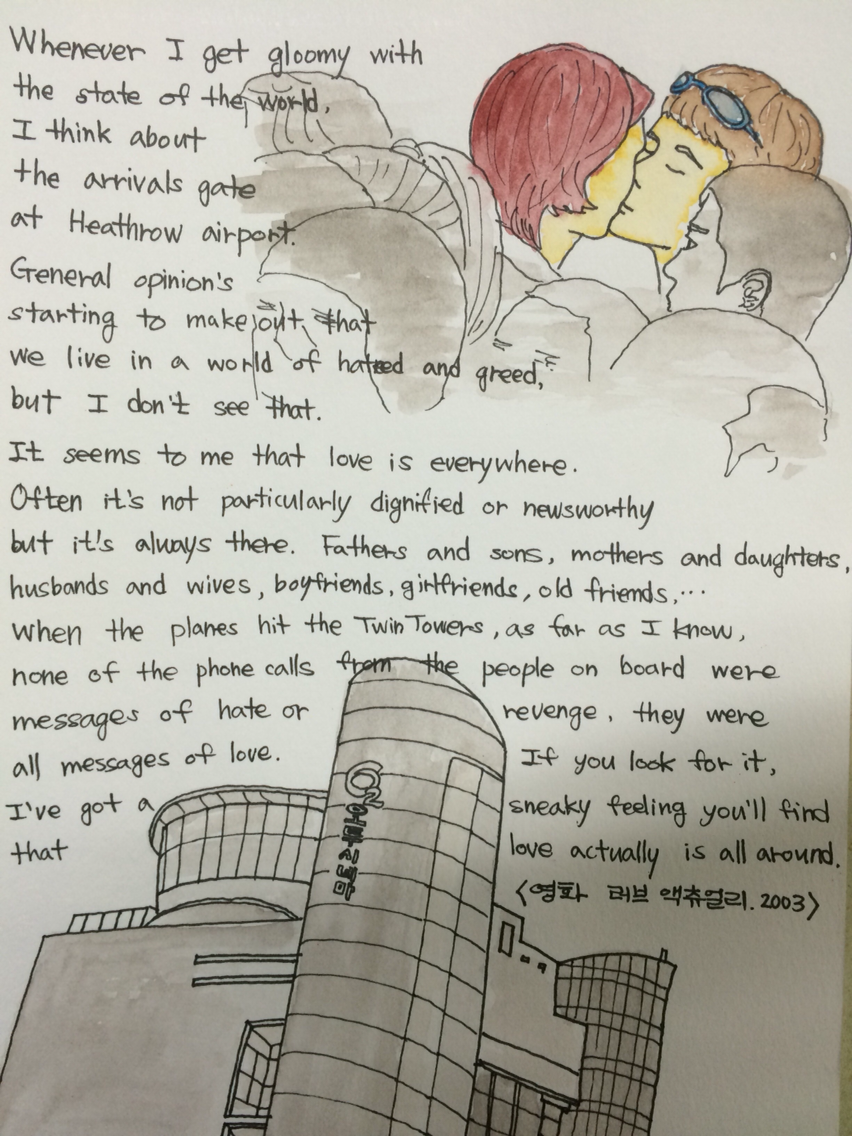 Whenever I get gloomy with
the state of the world,
I think about
the arrivals gate
at Heathrow airport.
General opinion's
starting to make out that
we live in a world of hatred and greed,
but I don't see that.
It seems to me that love is everywhere.
Often it's not particularly dignified or newsworthy
but it's always there. Fathers and sons, mothers and daughters,
husbands and wives, boyfriends, girlfriends, old friends,...
When the planes hit the Twin Towers, as far as I know,
none of the phone calls from the people on board were
messages of hate or revenge, they were
all messages of love. If you look for it,
I've got a sneaky feeling you'll find
that love actually is all around.
<영화 러브 액츄얼리. 2003>
허심